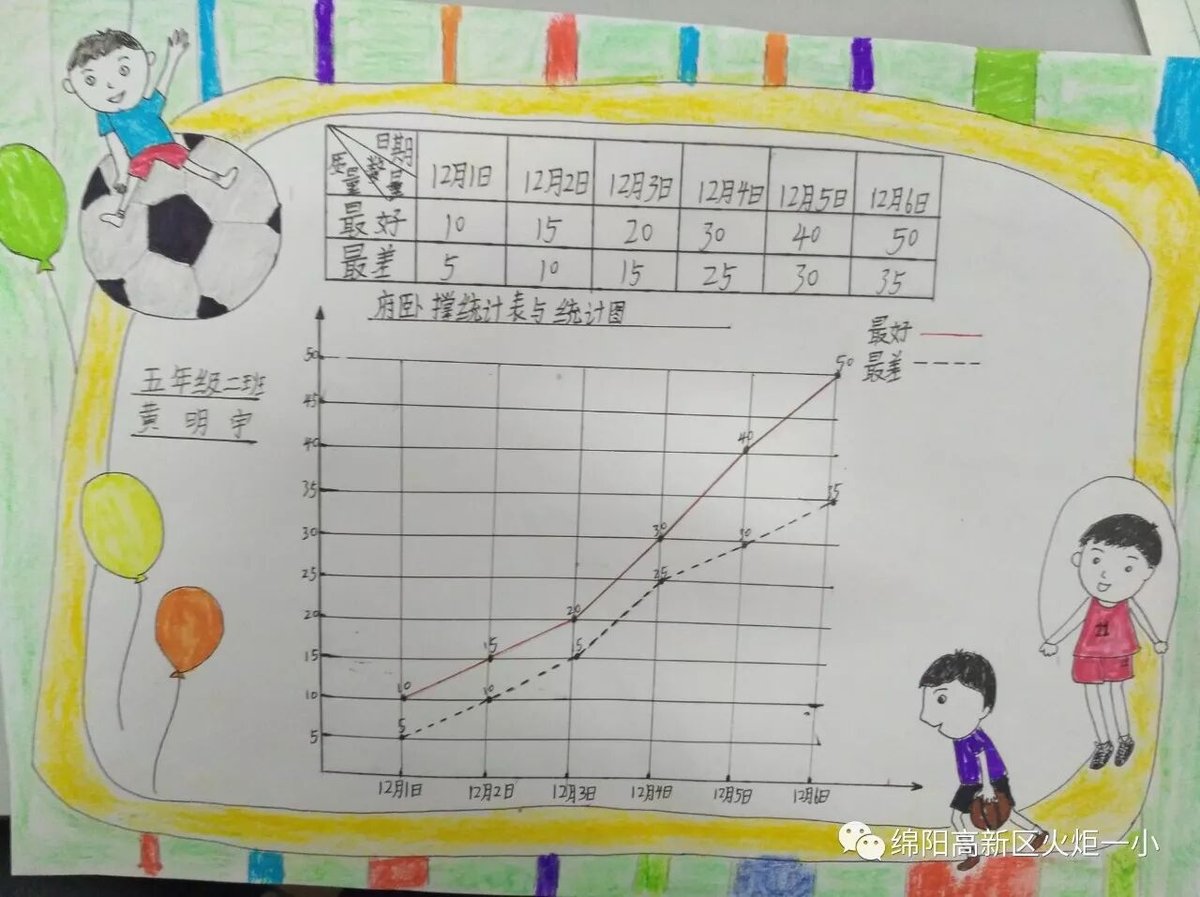 日期
12月1日 12月2日 12月3日 12月4日 12月5日 12月6日
最好 10 15 20 30 40 50
最差 5 10 15 25 30 35
府卧撑统计表与统计图
最好
最差
五年级二班
黄明宇
50
45
40
35
30
25
20
15
10
5
10 15 20 30 40 50
5 10 15 25 30 35
12月1日 12月2日 12月3日 12月4日 12月5日 12月6日
21
绵阳高新区火炬一小